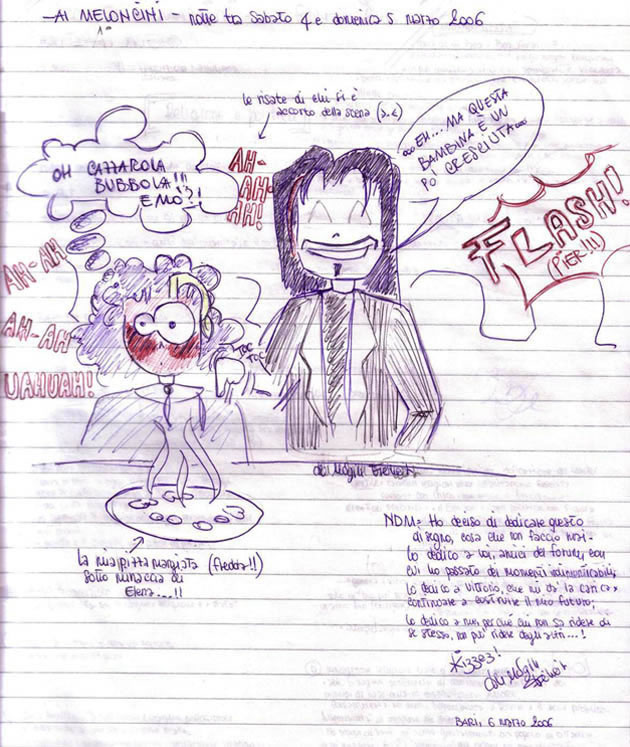 -AI MELONCINI - notte tra sabato 4 e domenica 5 marzo 2006
le risate di chi si è
accorto della scena (>.<)
OH CAZZAROLA
BUBBOLA!!!
E MÒ?!
AH-
AH-
AH!
...EH... MA QUESTA
BAMBINA È UN
PO' CRESCIUTA...
FLASH!
(PIER!!!)
AH-AH
AH-AH
UAHUAH!
TOC
TOC
La mia pizza mangiata (fredda!!)
sotto minaccia di
Elena...!!
NDM: Ho deciso di dedicare questo
disegno, cosa che non faccio mai.
Lo dedico a voi, amici del forum, con
cui ho passato dei momenti indimenticabili;
Lo dedico a Vittorio, che mi dà la carica x
continuare a costruire il mio futuro;
Lo dedico a me, perché chi non sa ridere di
se stesso, non può ridere degli altri...!
Kizzez!
BARI, 6 MARZO 2006